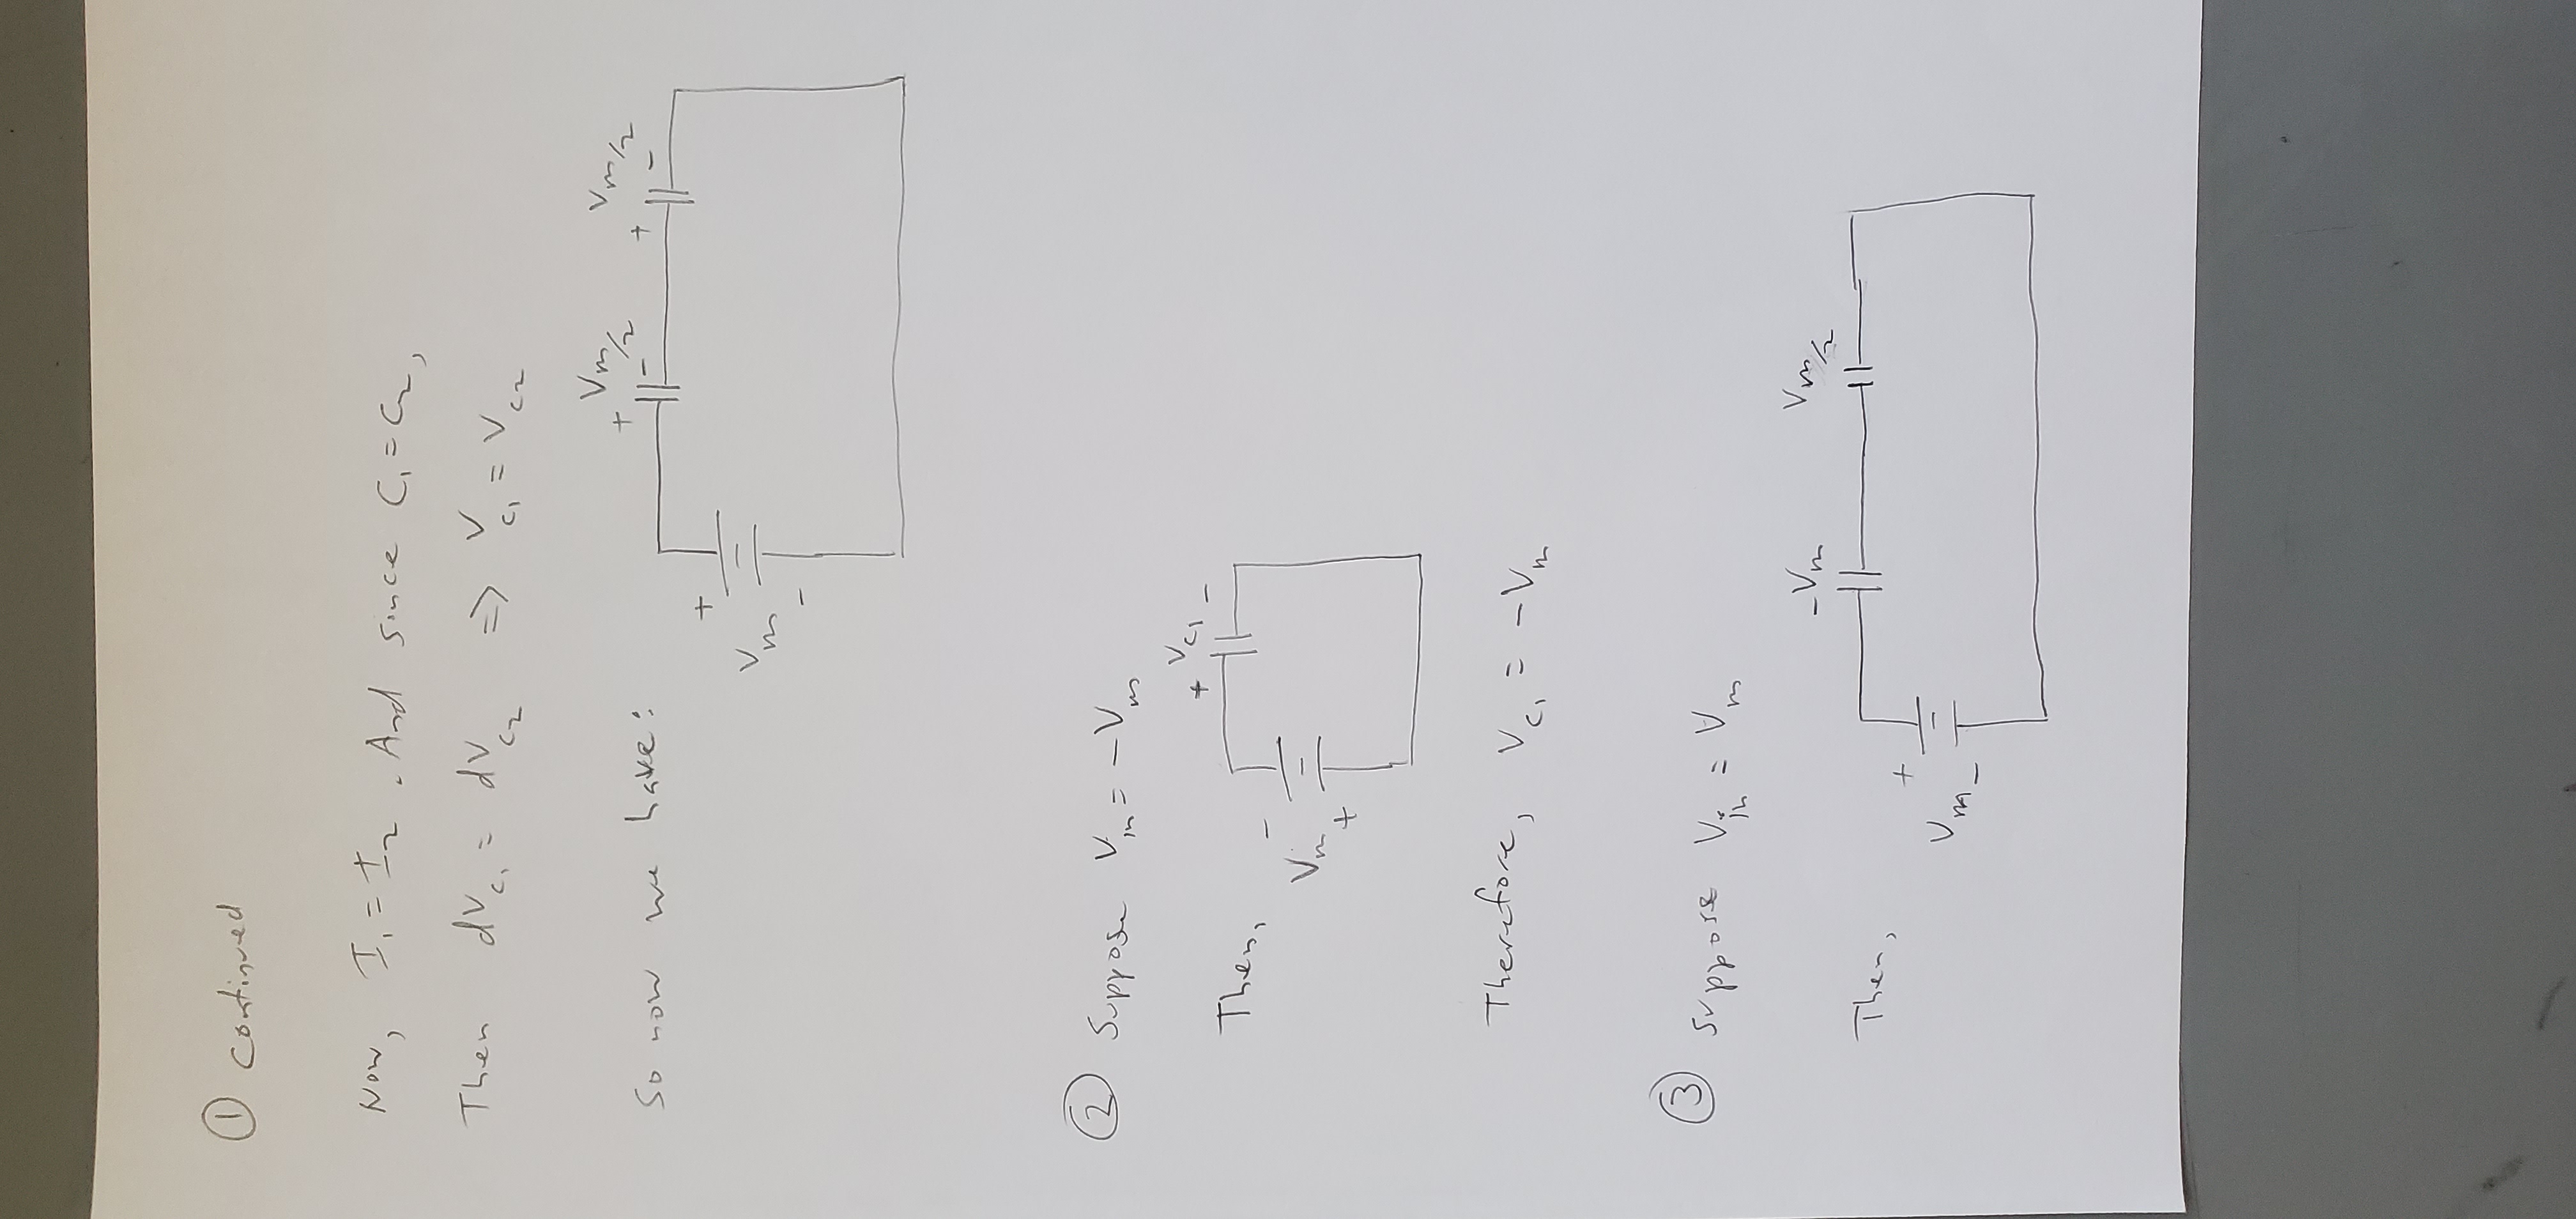 ① continued
Now, I₁ = I₂ . And since C₁ = C₂,
Then dV_C₁ = dV_C₂ => V_C₁ = V_C₂
So now we have:
+ Vm/2 - + Vm/2 -
+
Vm
-
② Suppose Vin = -Vm
+ VC₁ -
Then,
-
Vm
+
Therefore, VC₁ = -Vm
③ suppose Vin = Vm
-Vm Vm/2
Then,
+
Vm
-